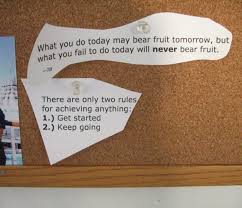 What you do today may bear fruit tomorrow, but
what you fail to do today will never bear fruit.
There are only two rules
for achieving anything:
1.) Get started
2.) Keep going